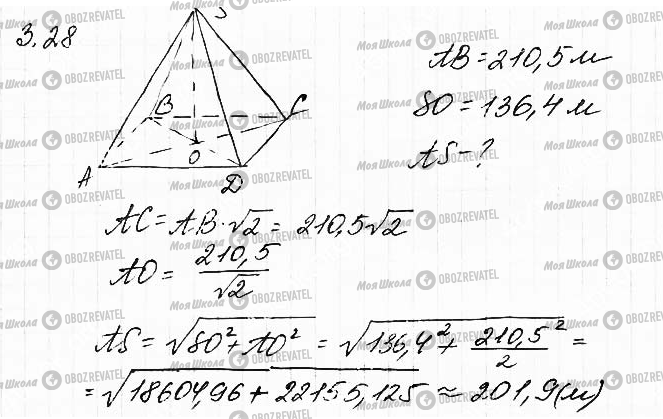 3.28
S
B
C
O
A
D
AB = 210,5 м
SO = 136,4 м
AS - ?
AC = AB · √2 = 210,5√2
AO = 210,5 / √2
AS = √(SO² + AO²) = √(136,4² + 210,5² / 2) =
= √(18604,96 + 22155,125) ≈ 201,9 (м)
Моя Школа OBOZREVATEL